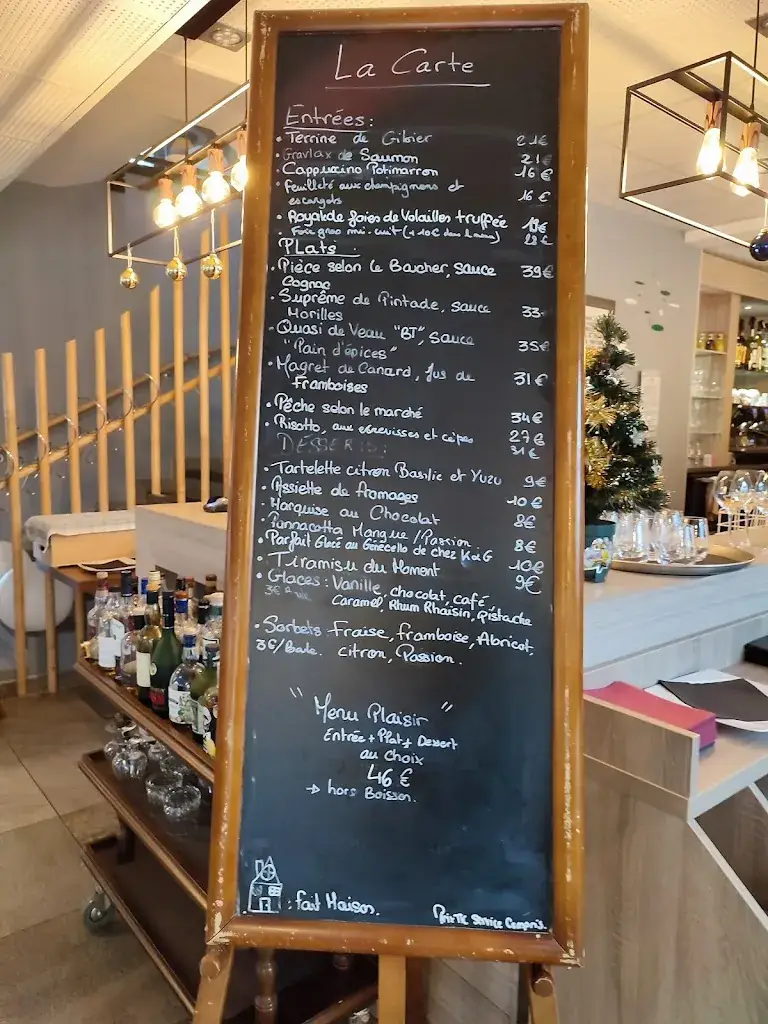 La Carte
Entrées:
• Terrine de Gibier 21€
• Gravlax de Saumon 21€
• Cappuccino Potimarron 16€
• Feuilleté aux champignons et 16€
escargots
• Royale de foies de Volailles truffée
• Foie gras mi-cuit (+10€ dans le menu)
Plats:
• Pièce selon le Boucher, sauce 39€
Cognac
• Suprême de Pintade, sauce 33-
Morilles
• Quasi de Veau "BT", sauce 35€
"Pain d'épices"
• Magret de Canard, Jus de 31€
Framboises
• Pêche selon le marché 34€
• Risotto, aux ecrevisses et cèpes 27€
DESSERTS: 31€
• Tartelette citron Basilic et Yuzu 9€
• Assiette de fromages 10€
• Marquise au Chocolat 8€
• Pannacotta Mangue/Passion 8€
• Parfait Glacé au Génecello de chez K&G 10€
• Tiramisu du Moment 9€
• Glaces: Vanille, chocolat, café,
3€ Caramel, Rhum Rhaisin, pistache
• Sorbets Fraise, framboise, Abricot,
3€/boule. citron, Passion.
" Menu Plaisir "
Entrée + Plat + Dessert
au choix
46€
→ hors Boisson.
: fait Maison.
Prix TTC Service Compris.